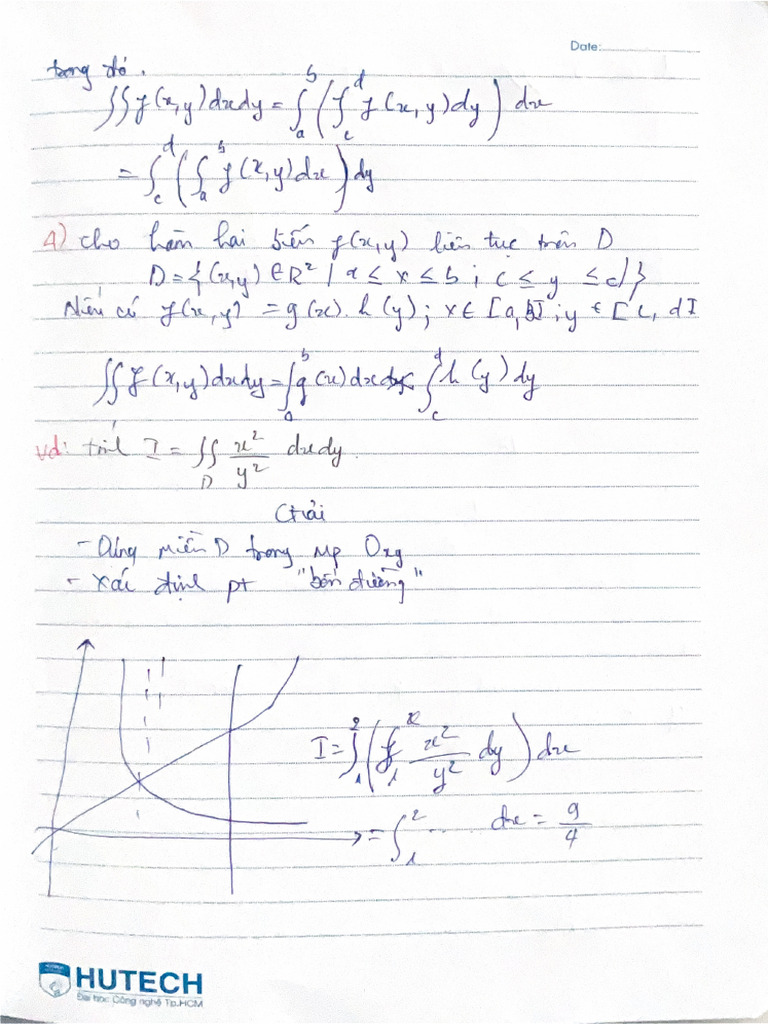 Date:
trong đó.
∬ f(x,y)dxdy = ∫_a^b (∫_c^d f(x,y)dy) dx
= ∫_c^d (∫_a^b f(x,y)dx) dy
4) Cho hàm hai biến f(x,y) liên tục trên D
D = {(x,y) ∈ R² / a ≤ x ≤ b ; c ≤ y ≤ d}
Nếu có f(x,y) = g(x). h(y) ; x ∈ [a,b] ; y ∈ [c, d]
∬ f(x,y)dxdy = ∫_a^b g(x)dx ∫_c^d h(y)dy
vd: tính I = ∬_D x²/y² dxdy.
Giải
- Dựng miền D trong mp Oxy
- Xác định pt "bốn đường"
I = ∫_1^2 (∫ x²/y² dy) dx
= ∫_1^2 ... dx = 9/4
HUTECH
Đại học Công nghệ Tp.HCM